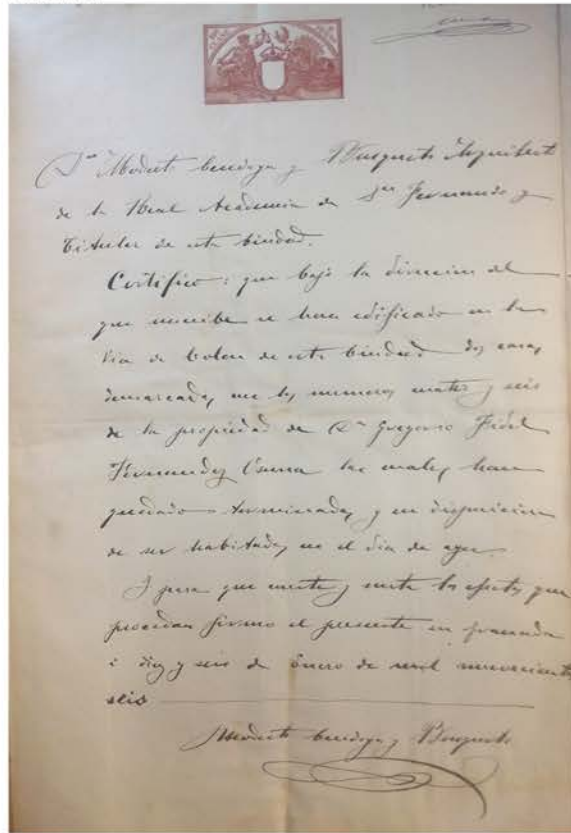 Dn Modesto Cendoya y Busquets Arquitecto
de la Real Academia de Sn Fernando y
Titular de esta Ciudad.
Certifico: que bajo la direccion del
que suscribe se han edificado en la
Via de Colon de esta Ciudad dos casas
demarcadas con los numeros cuatro y seis
de la propiedad de Dn Gregorio Fidel
Fernandez Osuna las cuales han
quedado terminadas y en disposicion
de ser habitadas en el dia de ayer.
I para que conste y surta los efectos que
procedan firmo el presente en Granada
á diez y seis de Enero de mil novecientos
seis
Modesto Cendoya y Busquets